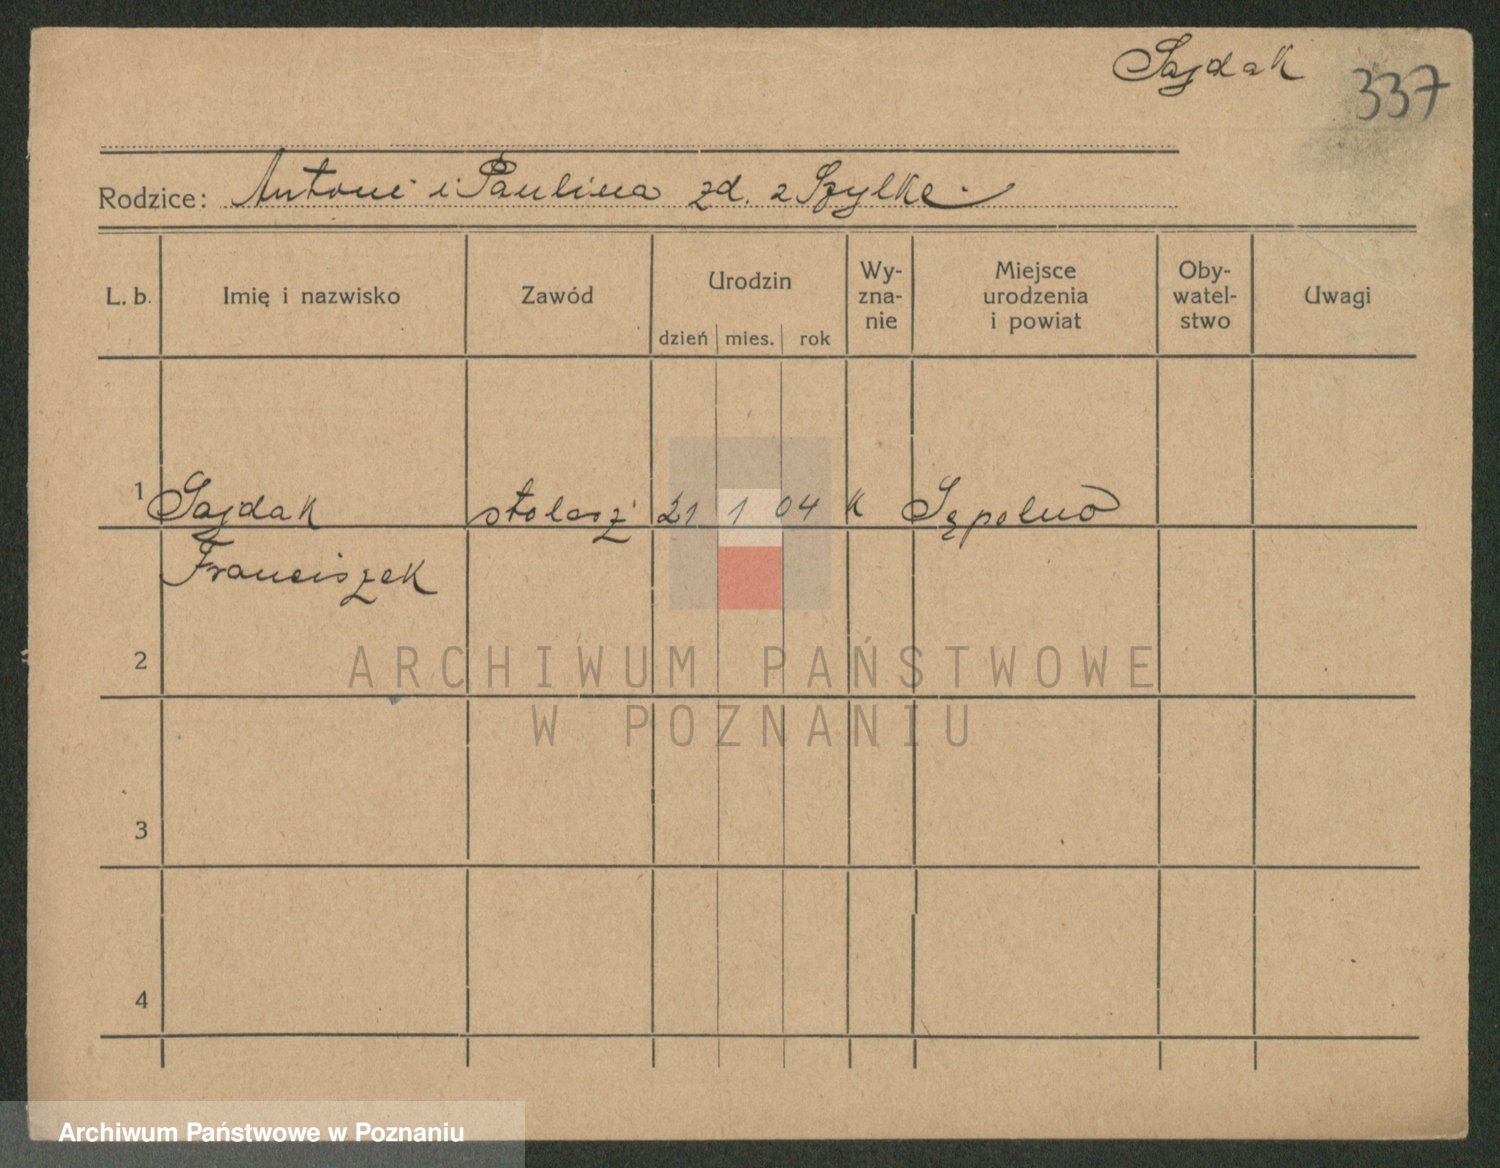 Sajdak
337
Rodzice: Antoni i Paulina zd. z Szylke.
L. b. Imię i nazwisko Zawód Urodzin Wy-zna-nie Miejsce urodzenia i powiat Oby-watel-stwo Uwagi
dzień mies. rok
1 Sajdak stolarz 21 1 04 K Sępolno
Franciszek
2
ARCHIWUM PAŃSTWOWE
W POZNANIU
3
4
Archiwum Państwowe w Poznaniu